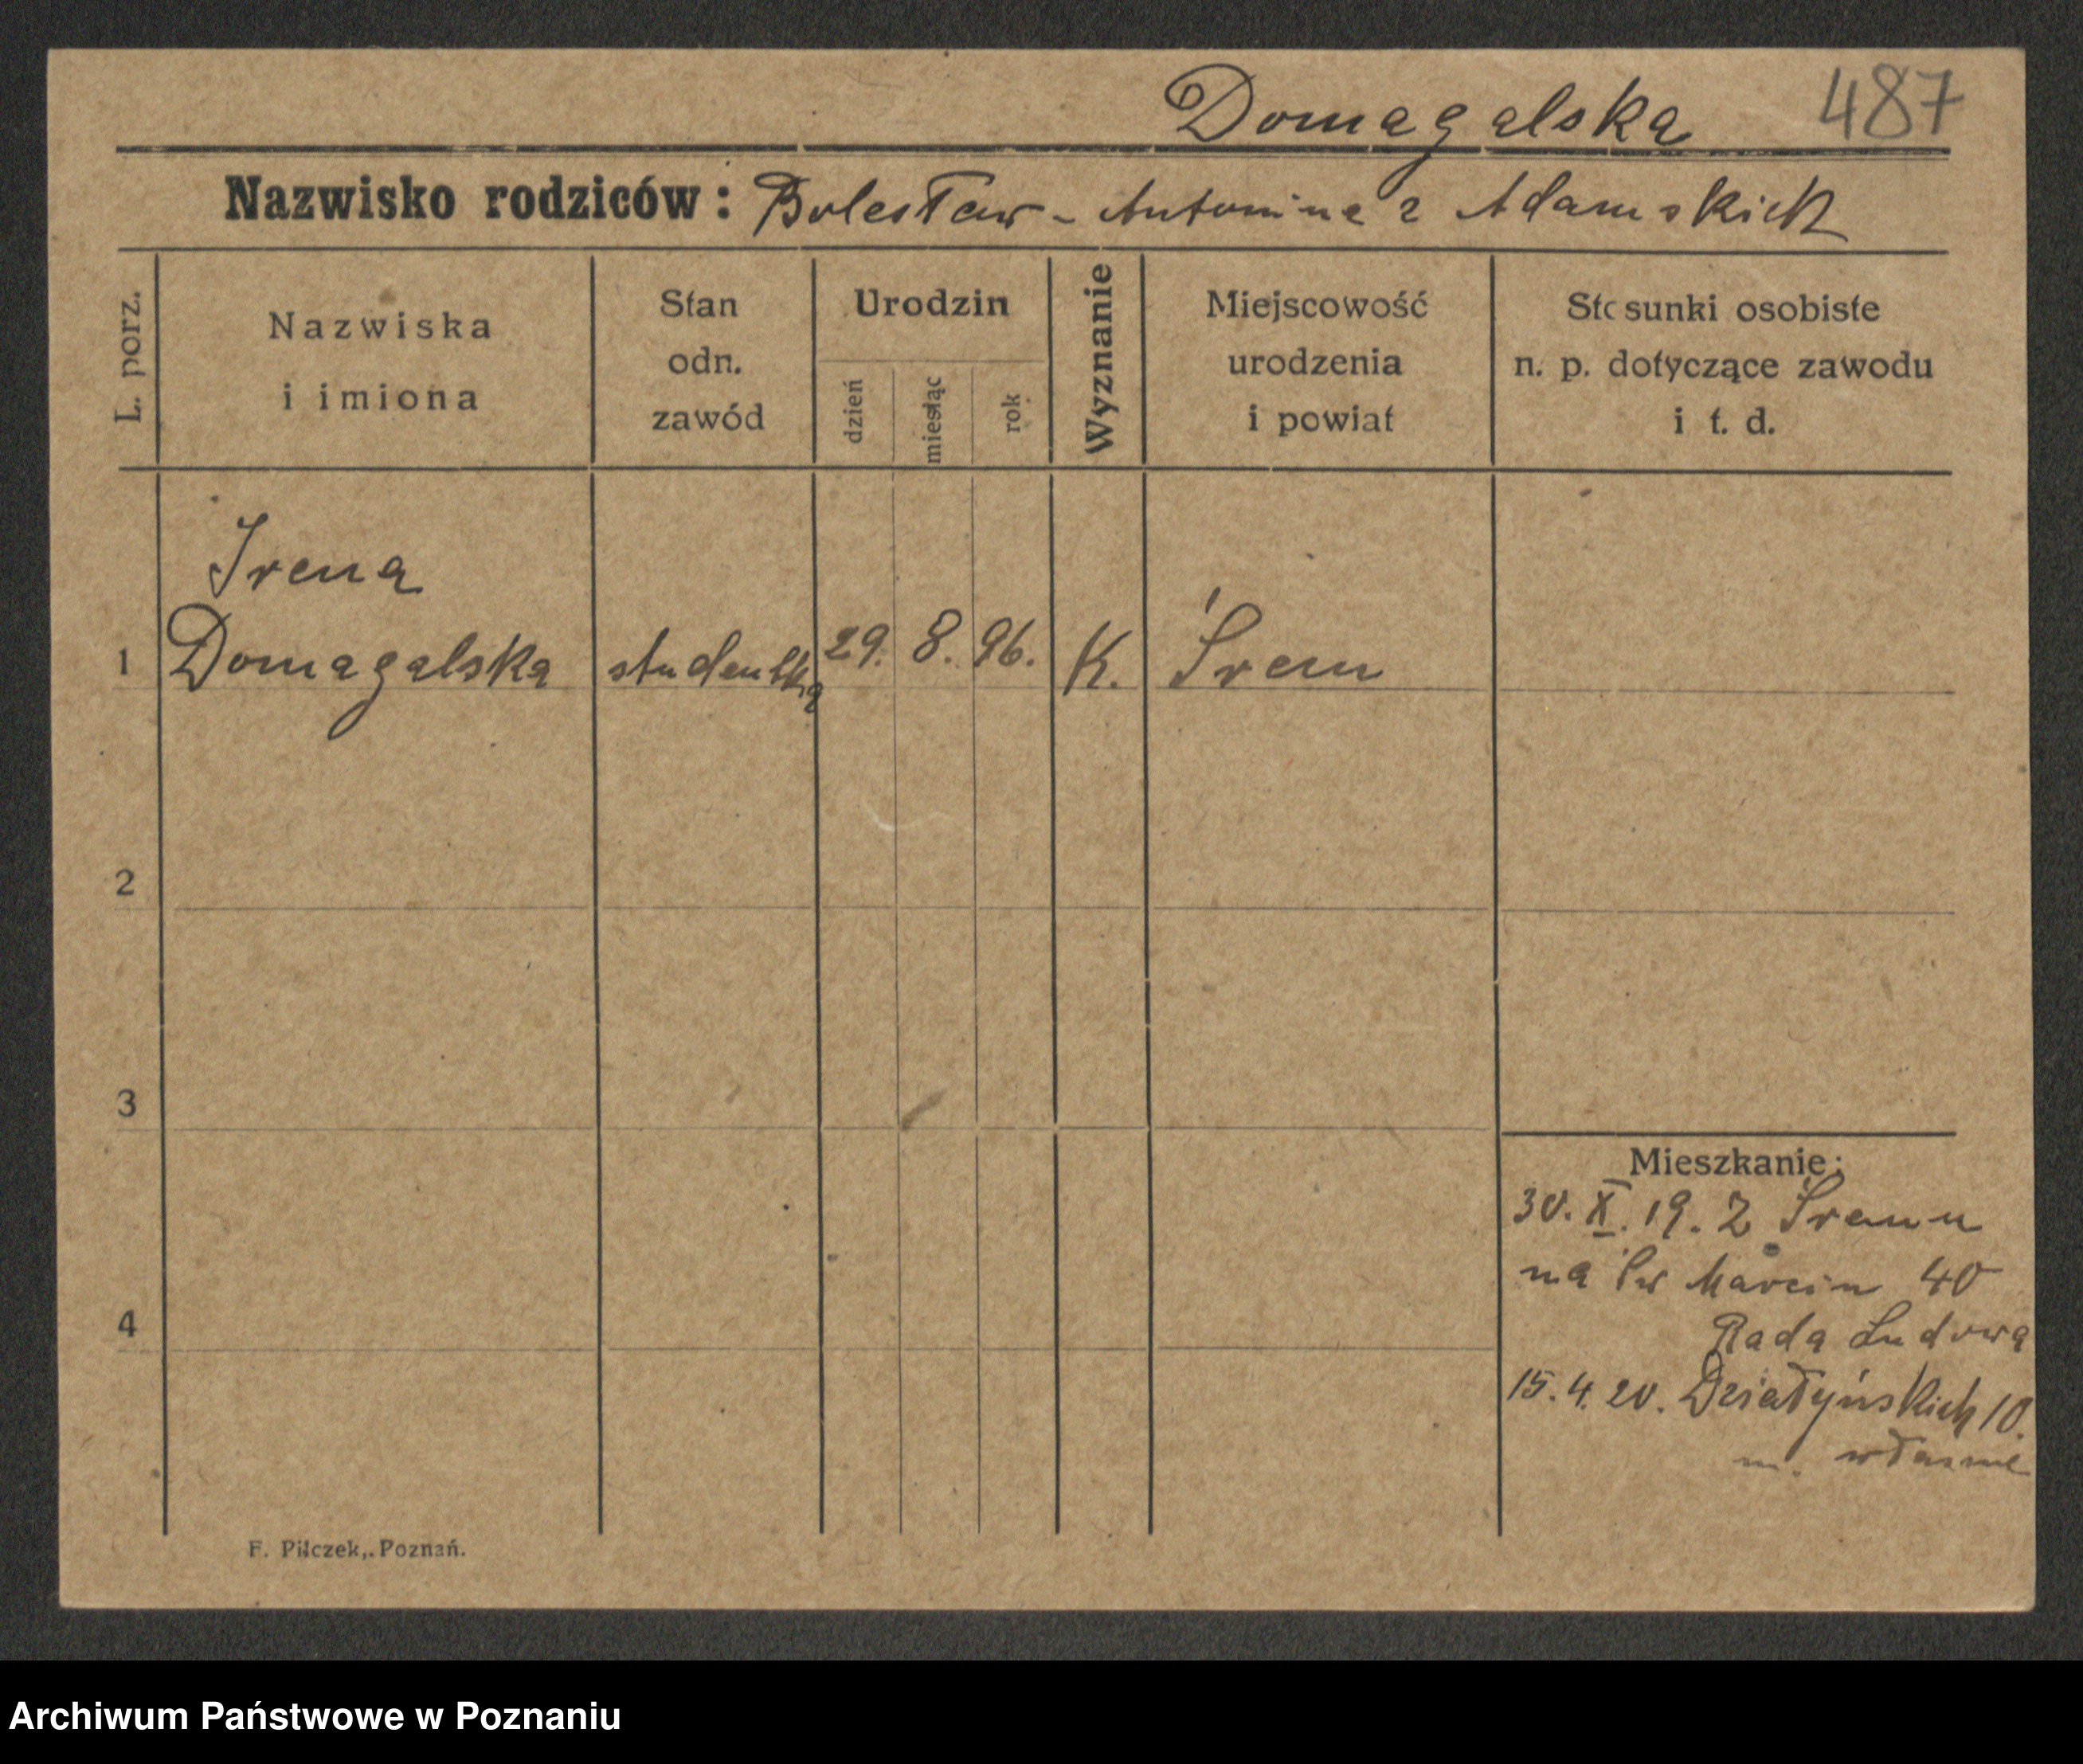 Domagalska 487
Nazwisko rodziców: Bolesław - Antonina z Adamskich
L. porz.
Nazwiska
i imiona
Stan
odn.
zawód
Urodzin
dzień
miesiąc
rok
Wyznanie
Miejscowość
urodzenia
i powiat
Stosunki osobiste
n. p. dotyczące zawodu
i t. d.
Irena
1 Domagalska studentka 29. 8. 96. K. Śrem
2
3
Mieszkanie:
30. X. 19. Z Śremu
na Św Marcin 40
4
Rada Ludowa
15. 4. 20. Działyńskich 10.
m. własne
F. Pilczek, Poznań.
Archiwum Państwowe w Poznaniu